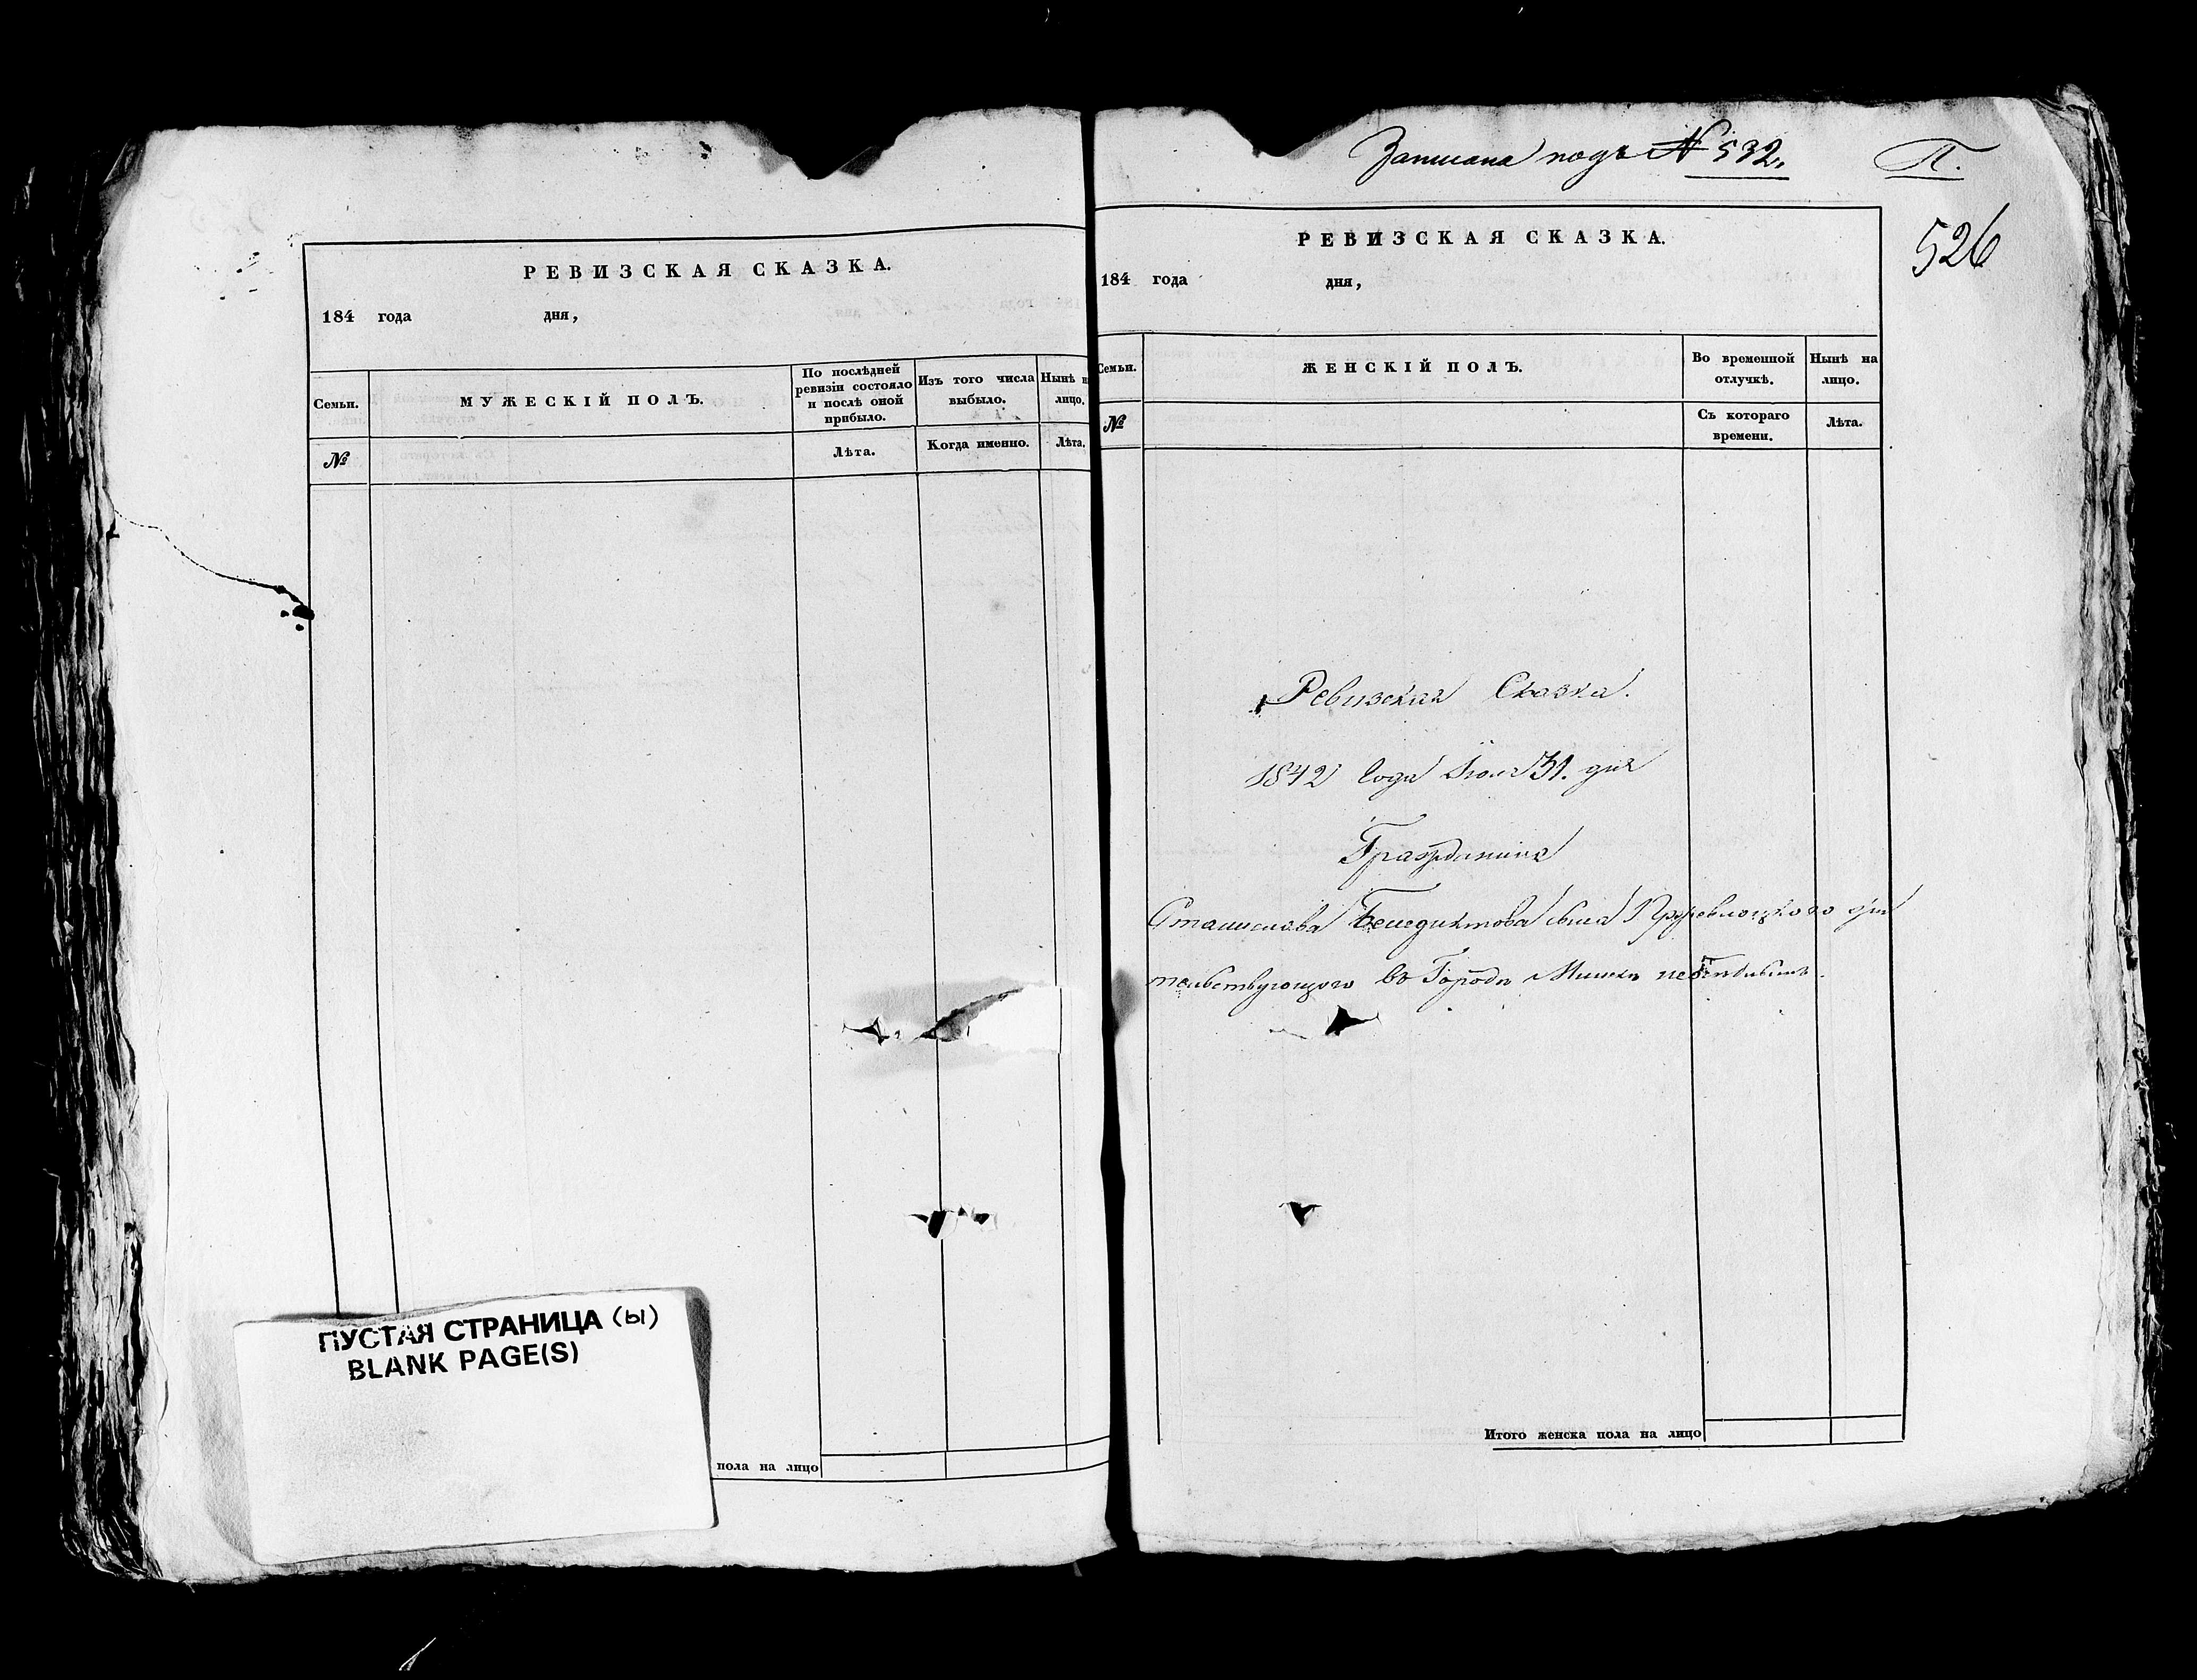 РЕВИЗСКАЯ СКАЗКА.
184 года дня,
Семьи. МУЖЕСКІЙ ПОЛЪ. По послѣдней ревизіи состояло и послѣ оной прибыло. Изъ того числа выбыло. Нынѣ н лицо.
№ Лѣта. Когда именно. Лѣта.
ПУСТАЯ СТРАНИЦА (ы)
BLANK PAGE(S)
пола на лицо
Записана подъ № 532.
П.
526
РЕВИЗСКАЯ СКАЗКА.
184 года дня,
Семьи. ЖЕНСКІЙ ПОЛЪ. Во временной отлучкѣ. Нынѣ на лицо.
№ Съ котораго времени. Лѣта.
Ревизская Сказка.
1842 Года Іюля 31. дня
Гражданина
Станислава Бенедиктова сына жи
тельствующаго въ Городѣ Минскѣ
Итого женска пола на лицо